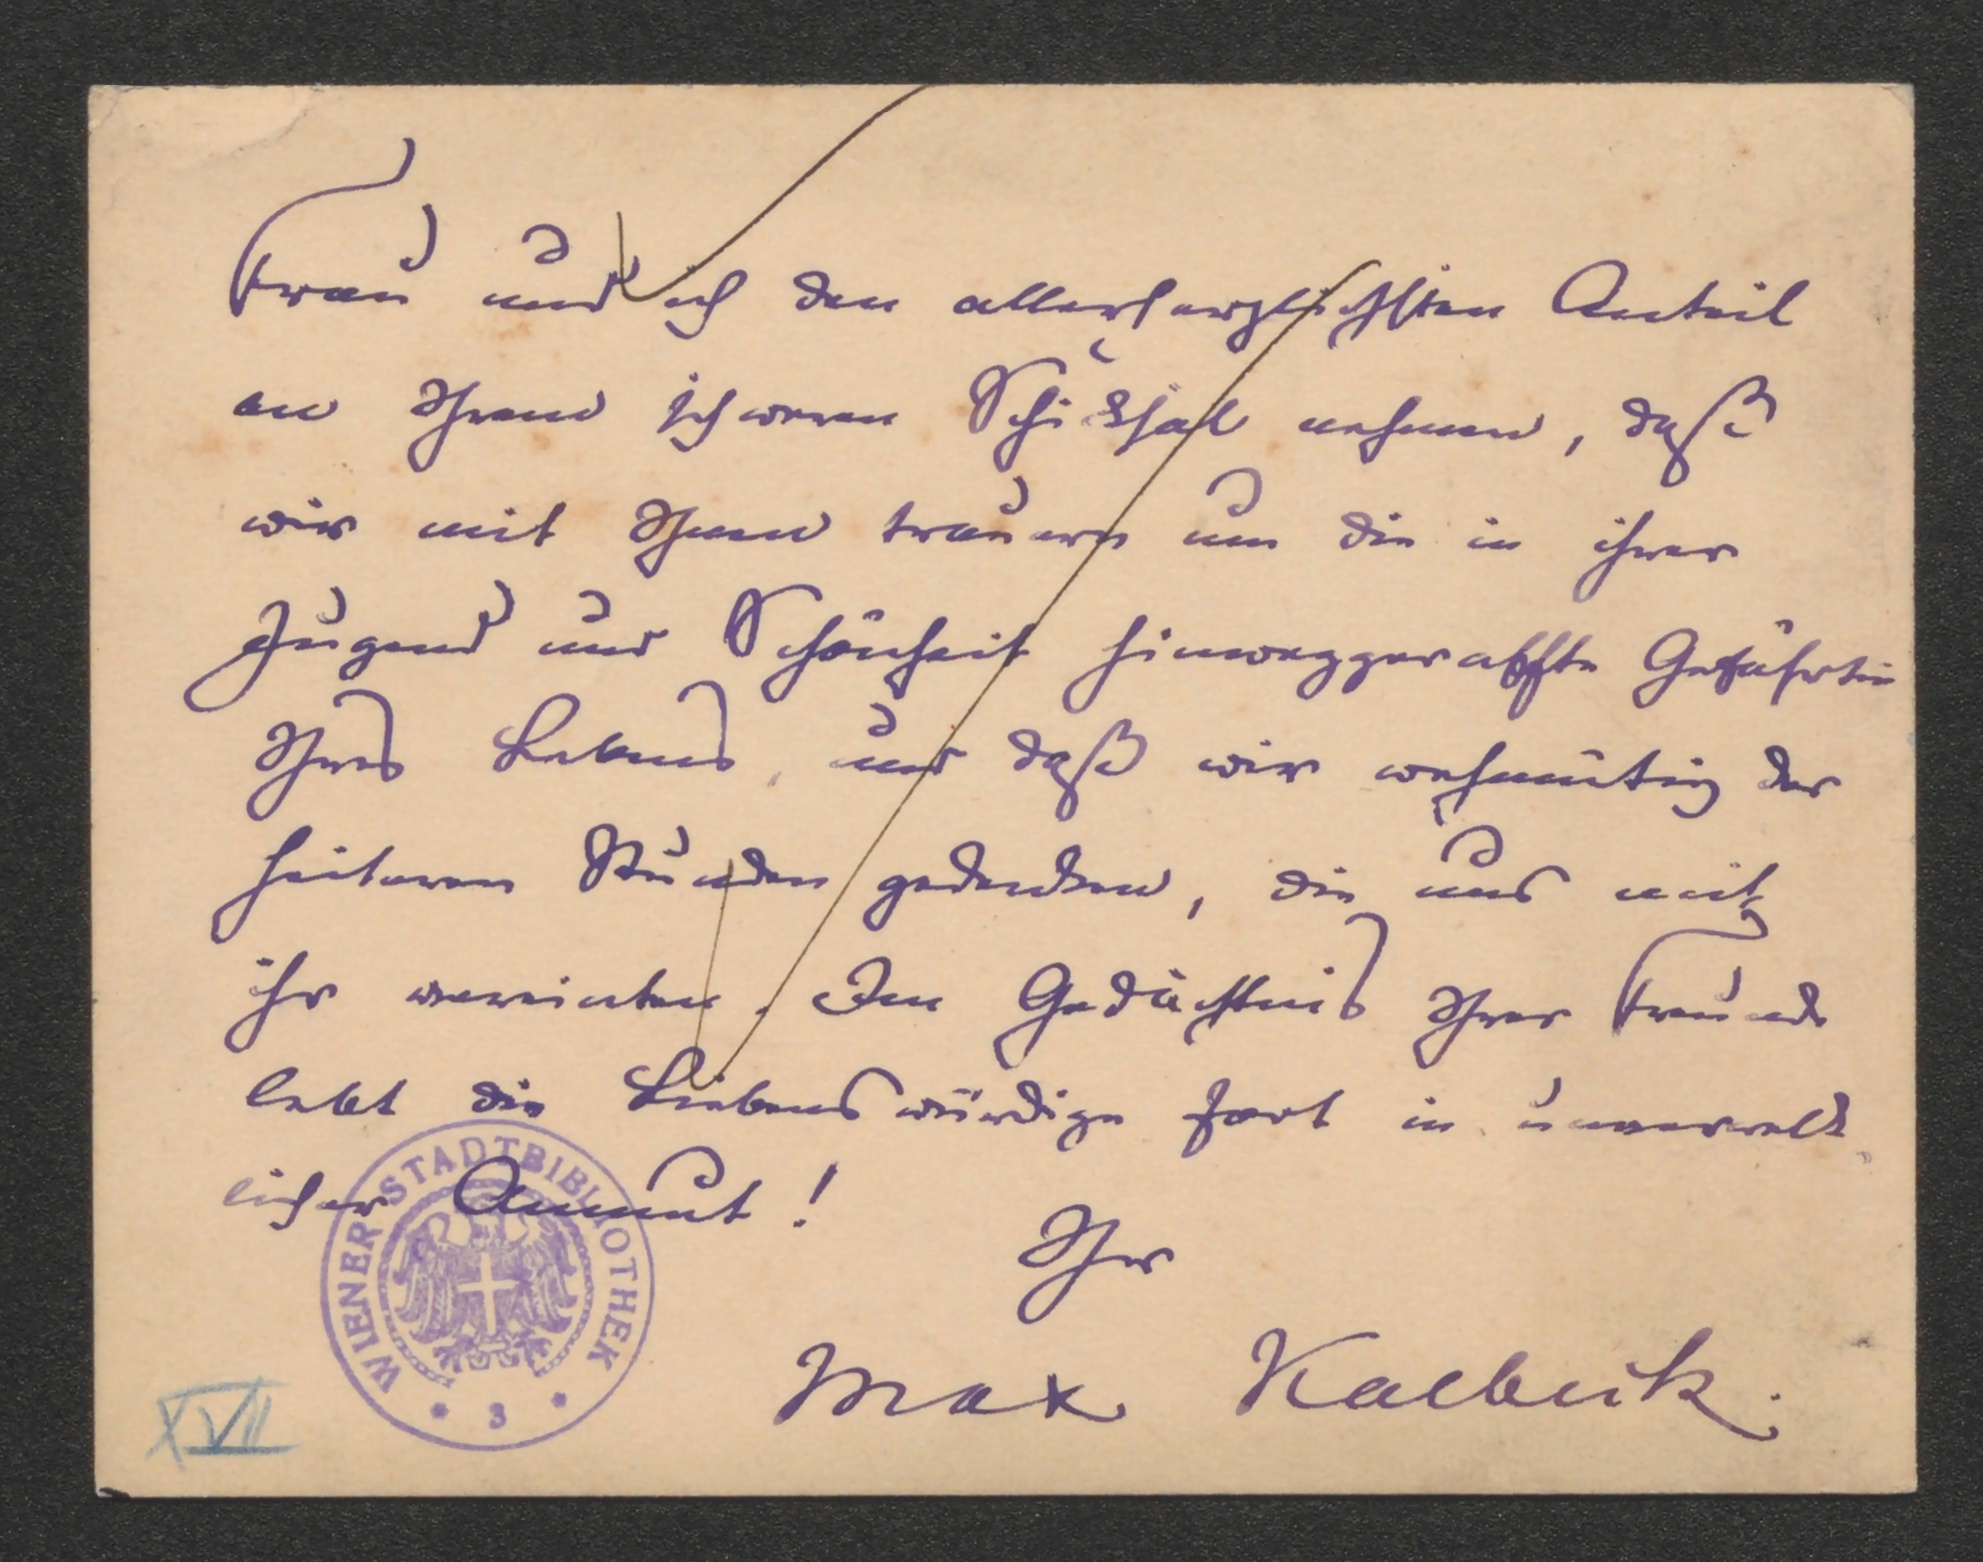 Frau und ich den allerherzlichsten Anteil
an Ihrem schweren Schicksal nehmen, daß
wir mit Ihnen trauern um die in ihrer
Jugend und Schönheit hinweggeraffte Gefährtin
Ihres Lebens, und daß wir wehmütig der
heiteren Stunden gedenken, die uns mit
ihr vereinten. Im Gedächtnis Ihrer Freunde
lebt die Liebenswürdige fort in unverwelk
licher Anmut!
Ihr
Max Kalbeck.
WIENER STADTBIBLIOTHEK
* 3 *
XVII